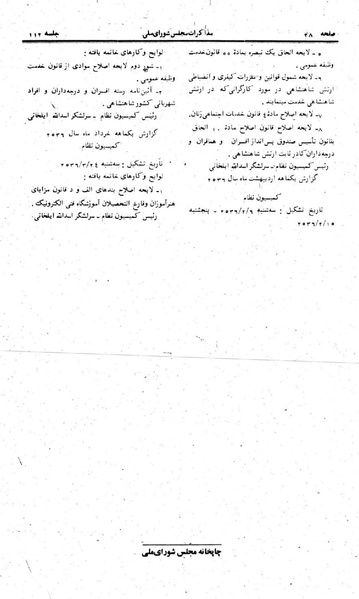 صفحه ۴۸
مذاکرات مجلس شورای ملی
جلسه ۱۱۲
ـ لایحه الحاق یک تبصره بماده ۵۵ قانون خدمت
وظیفه عمومی.
ـ لایحه شمول قوانین و مقررات کیفری و انضباطی
ارتش شاهنشاهی در مورد کارگرانی که در ارتش
شاهنشاهی خدمت مینمایند.
ـ لایحه اصلاح ماده قانون خدمات اجتماعی زنان.
ـ لایحه اصلاح قانون اصلاح ماده الحاق
بقانون تأسیس صندوق پس انداز افسران و همافران و
درجه‌داران کادر ثابت ارتش شاهنشاهی.
رئیس کمیسیون نظام ـ سرلشگر اسدالله ایلخانی
گزارش یکماهه اردیبهشت ماه سال ۲۵۳۶
کمیسیون نظام
تاریخ تشکیل: سه‌شنبه ۲۵۳۶/۲/۶ ـ پنجشنبه
۲۵۳۶/۲/۱۵
لوایح و کارهای خاتمه یافته:
ـ شور دوم لایحه اصلاح موادی از قانون خدمت
وظیفه عمومی.
ـ آئین‌نامه رسته افسران و درجه‌داران و افراد
شهربانی کشور شاهنشاهی.
رئیس کمیسیون نظام ـ سرلشگر اسدالله ایلخانی
گزارش یکماهه خرداد ماه سال ۲۵۳۶
کمیسیون نظام
تاریخ تشکیل: سه‌شنبه ۲۵۳۶/۳/۲۴
لوایح و کارهای خاتمه یافته:
ـ لایحه اصلاح بندهای الف و د قانون مزایای
هنرآموزان و فارغ التحصیلان آموزشگاه فنی الکترونیک.
رئیس کمیسیون نظام ـ سرلشگر اسدالله ایلخانی.
چاپخانه مجلس شورای ملی